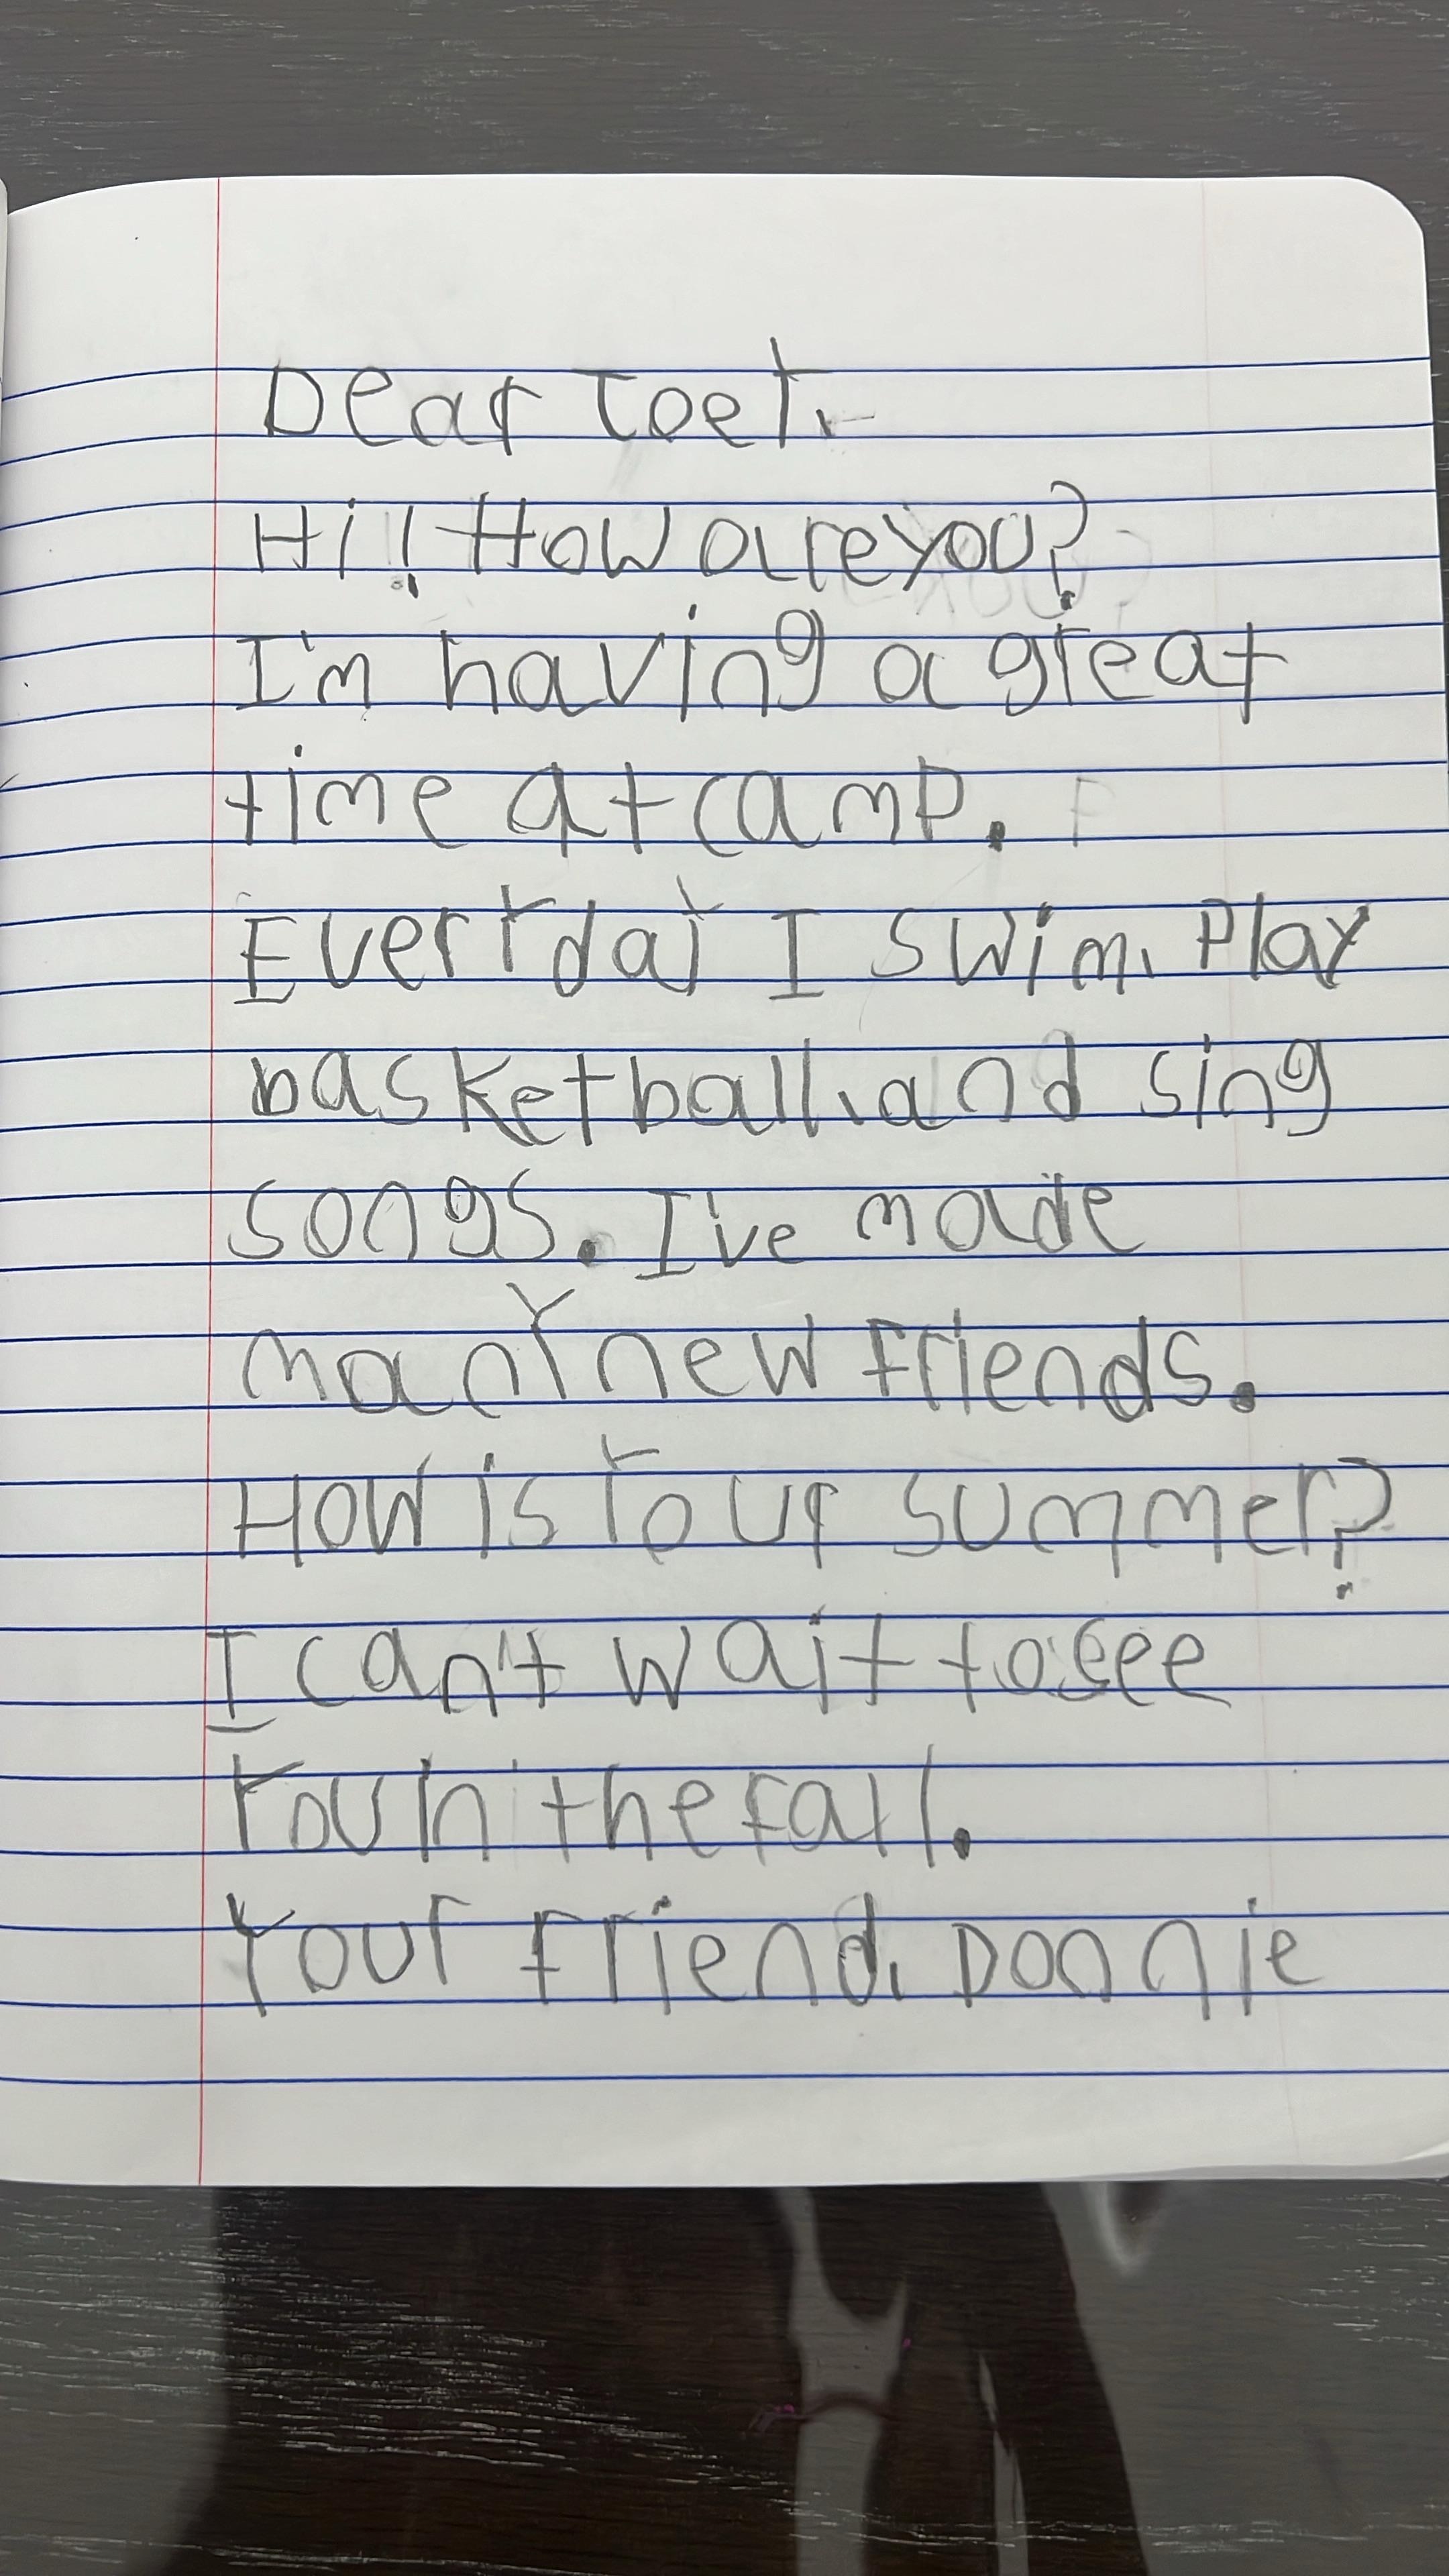 Dear Toet,
Hi! How are you?
I'm having a great
time at camp.
Everyday I swim, Play
basketball, and sing
songs. I've made
many new friends.
How is your summer?
I can't wait to see
You in the fall.
Your friend, Donnie